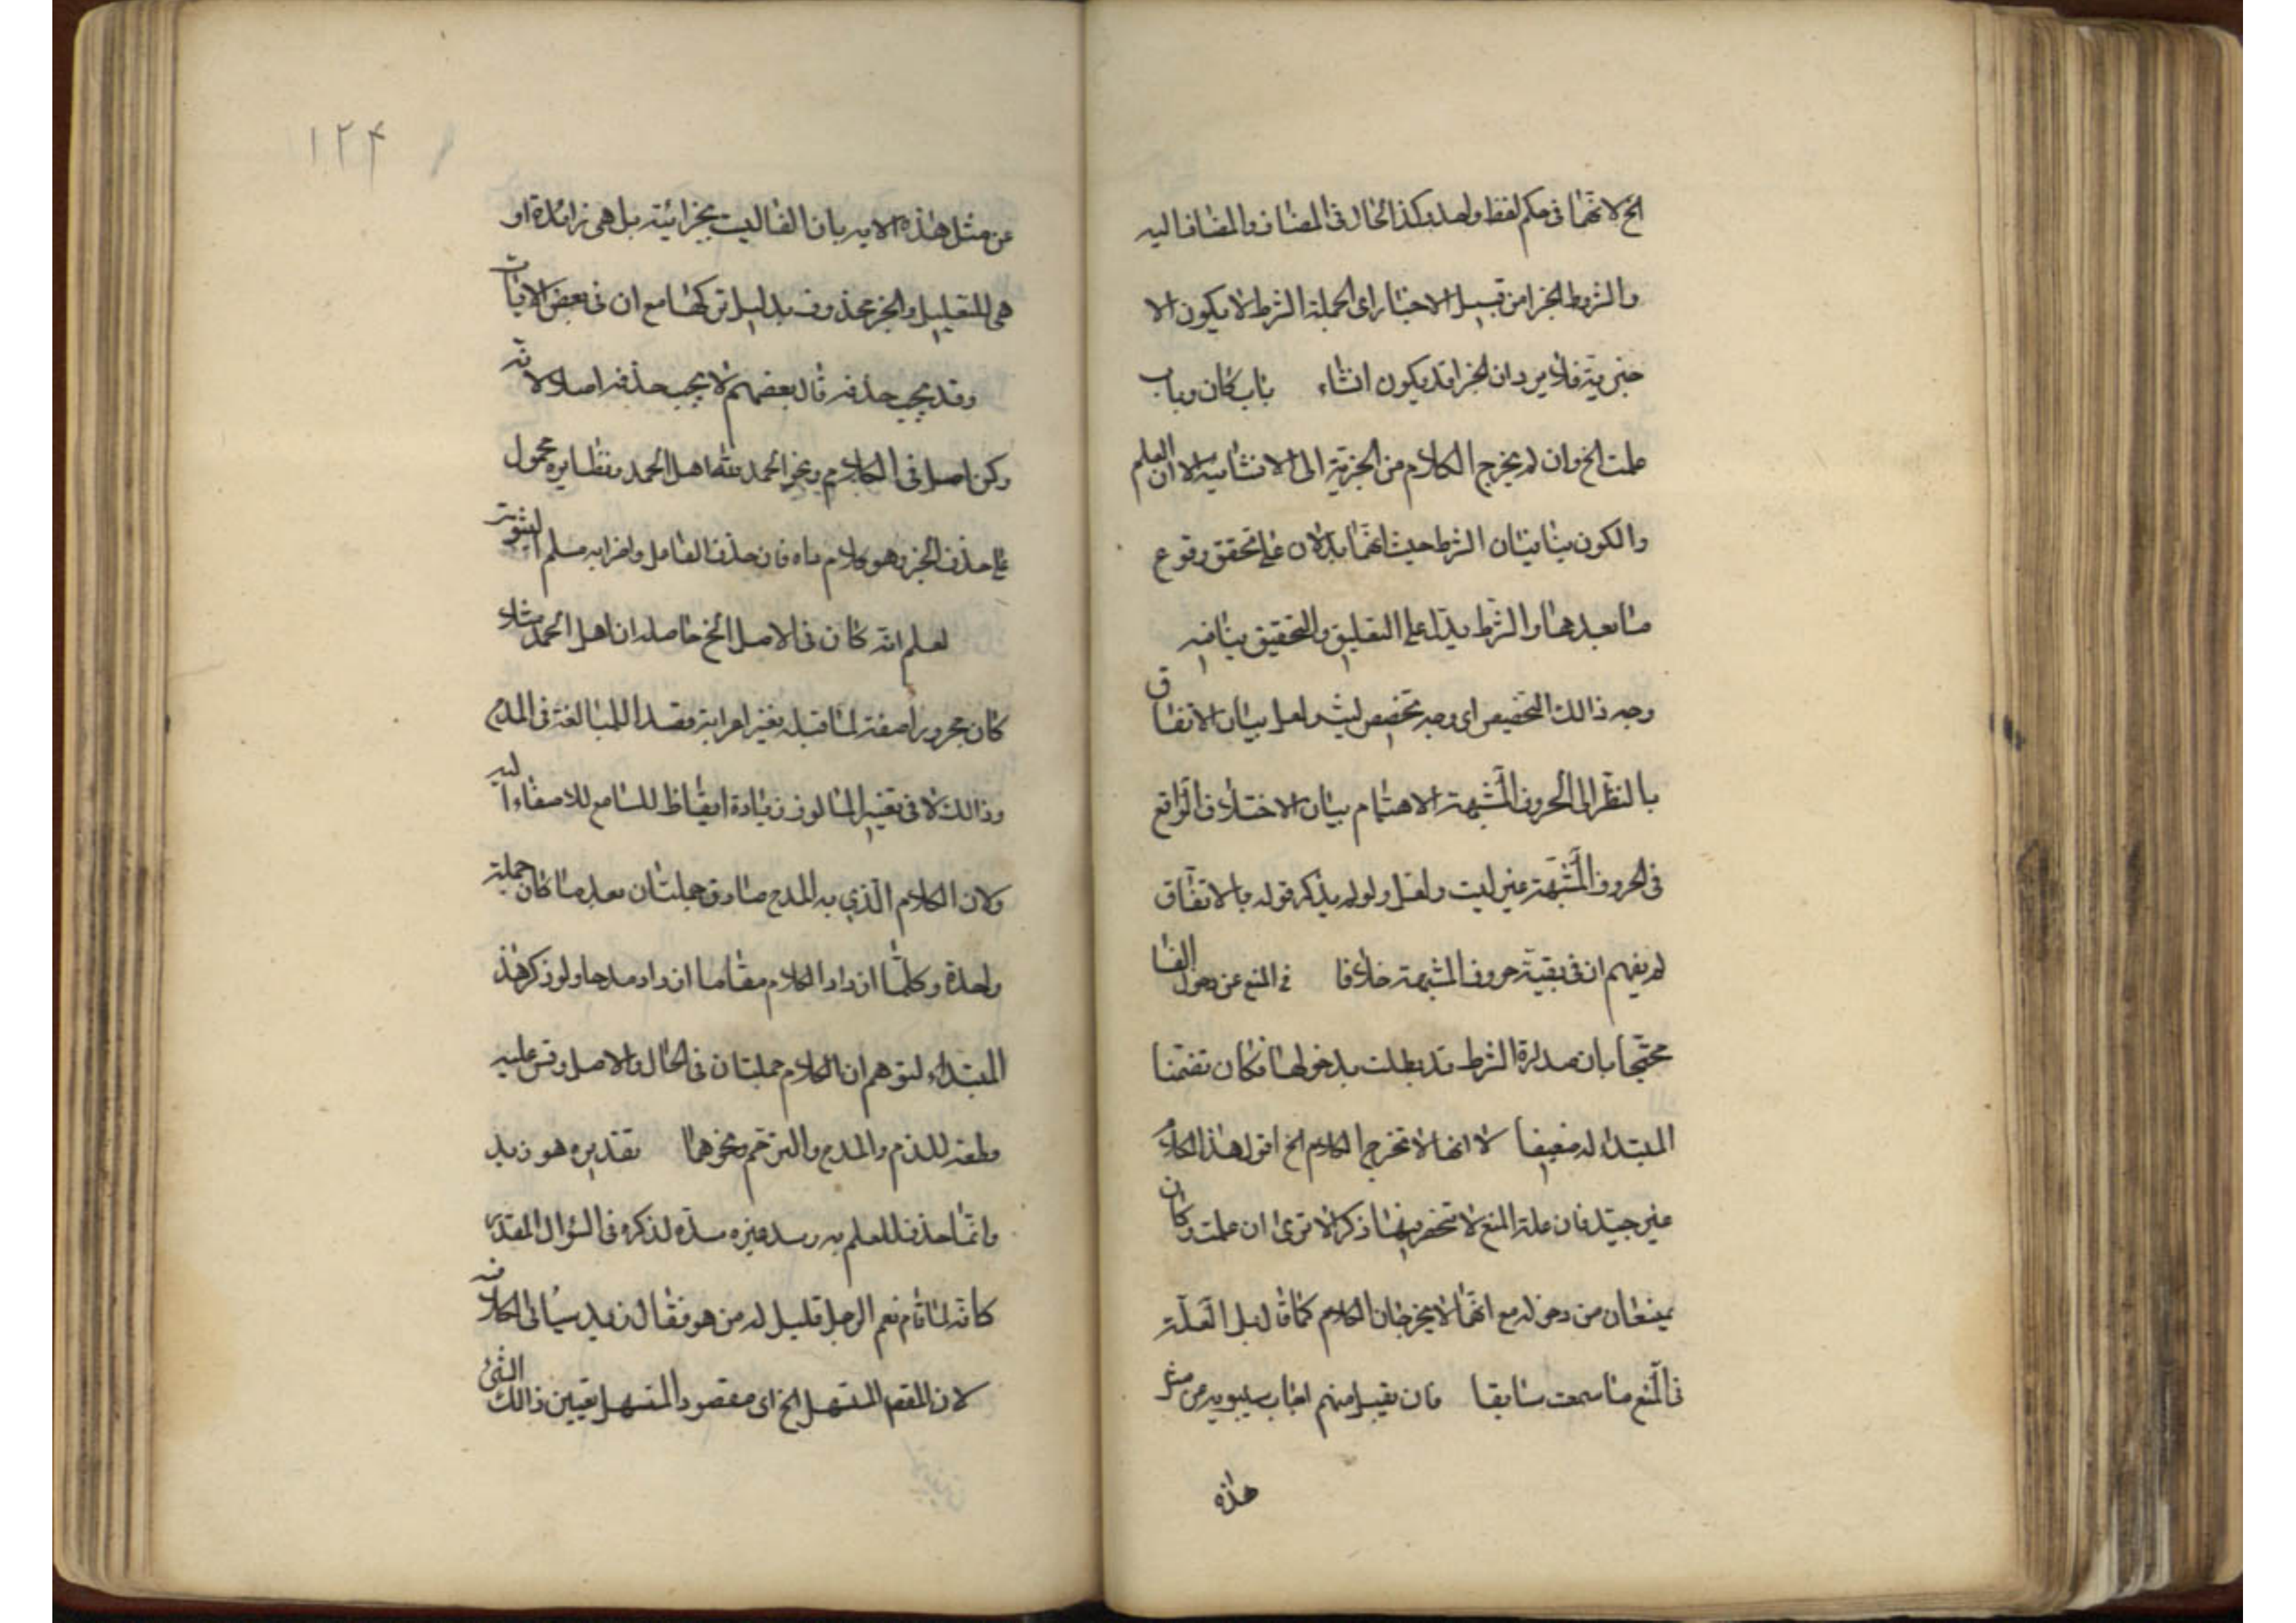 الخ لانهما فى حكم لفظ واحد وكذا الحال فى المضاف والمضاف اليه
والشرط والجزا من قبيل الاخبار اى الجملة الشرط لا يكون الا
خبرية فلا يرد ان الجزا قد يكون انشاء باب كان وباب
علمت الخ وان لم يخرج الكلام من الخبرية الى الانشائية الا ان العلم
والكون ينافيان الشرط حيث انهما يدلان على تحقق وقوع
ما بعدهما والشرط يدل على التعليق والتحقيق ينافيه
وجه ذالك التخصيص اى وجه تخصيص ليت ولعل ببيان الاتفاق
بالنظر الى الحروف المشبهة الاهتمام ببيان الاختلاف الواقع
فى الحروف المشبهة غير ليت ولعل ولو لم يذكر قوله بالاتفاق
لم يفهم ان فى بقية حروف المشبهة خلافا فى المنع عن دخول الفا
محتجا بان صدارة الشرط قد بطلت بدخولها فكان تضمنا
المبتداء له ضعيفا لا انها لا تخرج الكلام الخ اقول هذا الكلام
غير جيد فان علة المنع لا تنحصر فيها ذكر الا ترى ان علمت وكان
يمنعان من دخوله مع انهما لا يخرجان الكلام كما قال بل العلة
فى المنع ما سمعت سابقا فان قيل منهم اجاب سيبويه عن مثل
هذه
۱۲۴
عن مثل هذه الاية بان الفا ليت بجزائية بل هى زائدة او
هى للتعليل والخبر محذوف بدليل تركها مع ان فى بعض الايات
وقد يجب حذفه قال بعضهم لا يجب حذفه اصلا لانه
ركن اصل فى الكلام ونحو الحمد لله اهل الحمد ونظايره محمول
على حذف الخبر وهو كلام فان حذف العامل واعرابه مسلم الثبوت
لعلم انه كان فى الاصل الخ حاصله ان اهل الحمد مثلا
كان مجرورا صفة لما قبله بغير اعرابه وقصد المبالغة فى المدح
وذالك لا فى تغيير المالوف زيادة ايقاظ للسامع للاصغاء اليه
ولان الكلام الذي به المدح صار فى جملتان بعد ما كان جملة
واحدة وكلما ازداد الكلام مقاما ازداد مدحا ولو ذكر هذ
المبتداء لتوهم ان الكلام جملتان فى الحال والاصل وقس عليه
وطعه للذم والمدح والترحم ونحوهما تقديره هو زيد
وانما حذف للعلم به وسد غيره مسده لذكره فى السؤال المقدر
كانه لما قام نعم الرجل قليل له من هو فقال زيد سياتى الكلام فيه
لان المقصد المستهل الخ اى مقصود المستهل تعيين ذالك الشئ